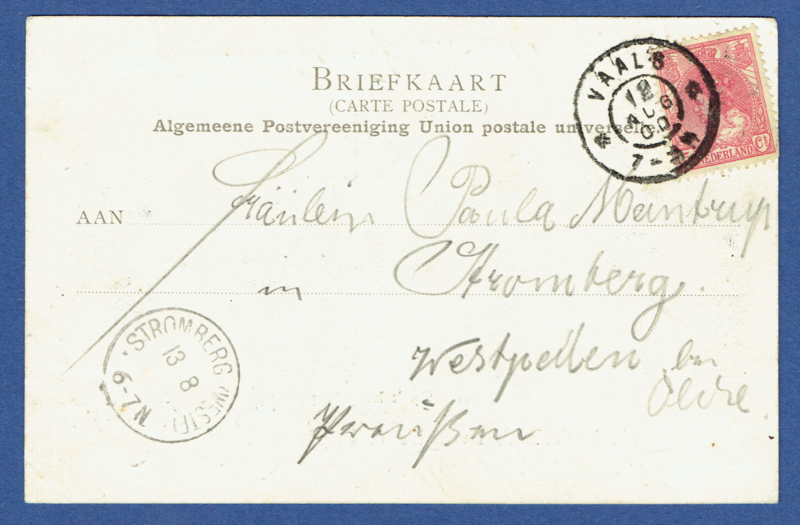 BRIEFKAART
(CARTE POSTALE)
Algemeene Postvereeniging Union postale universelle
VAALS
12
AUG
00
7-
NEDERLAND
Ct
AAN Fräulein Paula Mentrup
in Stromberg.
Westpellen bei
Oelde.
Preußen
STROMBERG (WESTF)
13 8
N.7-9